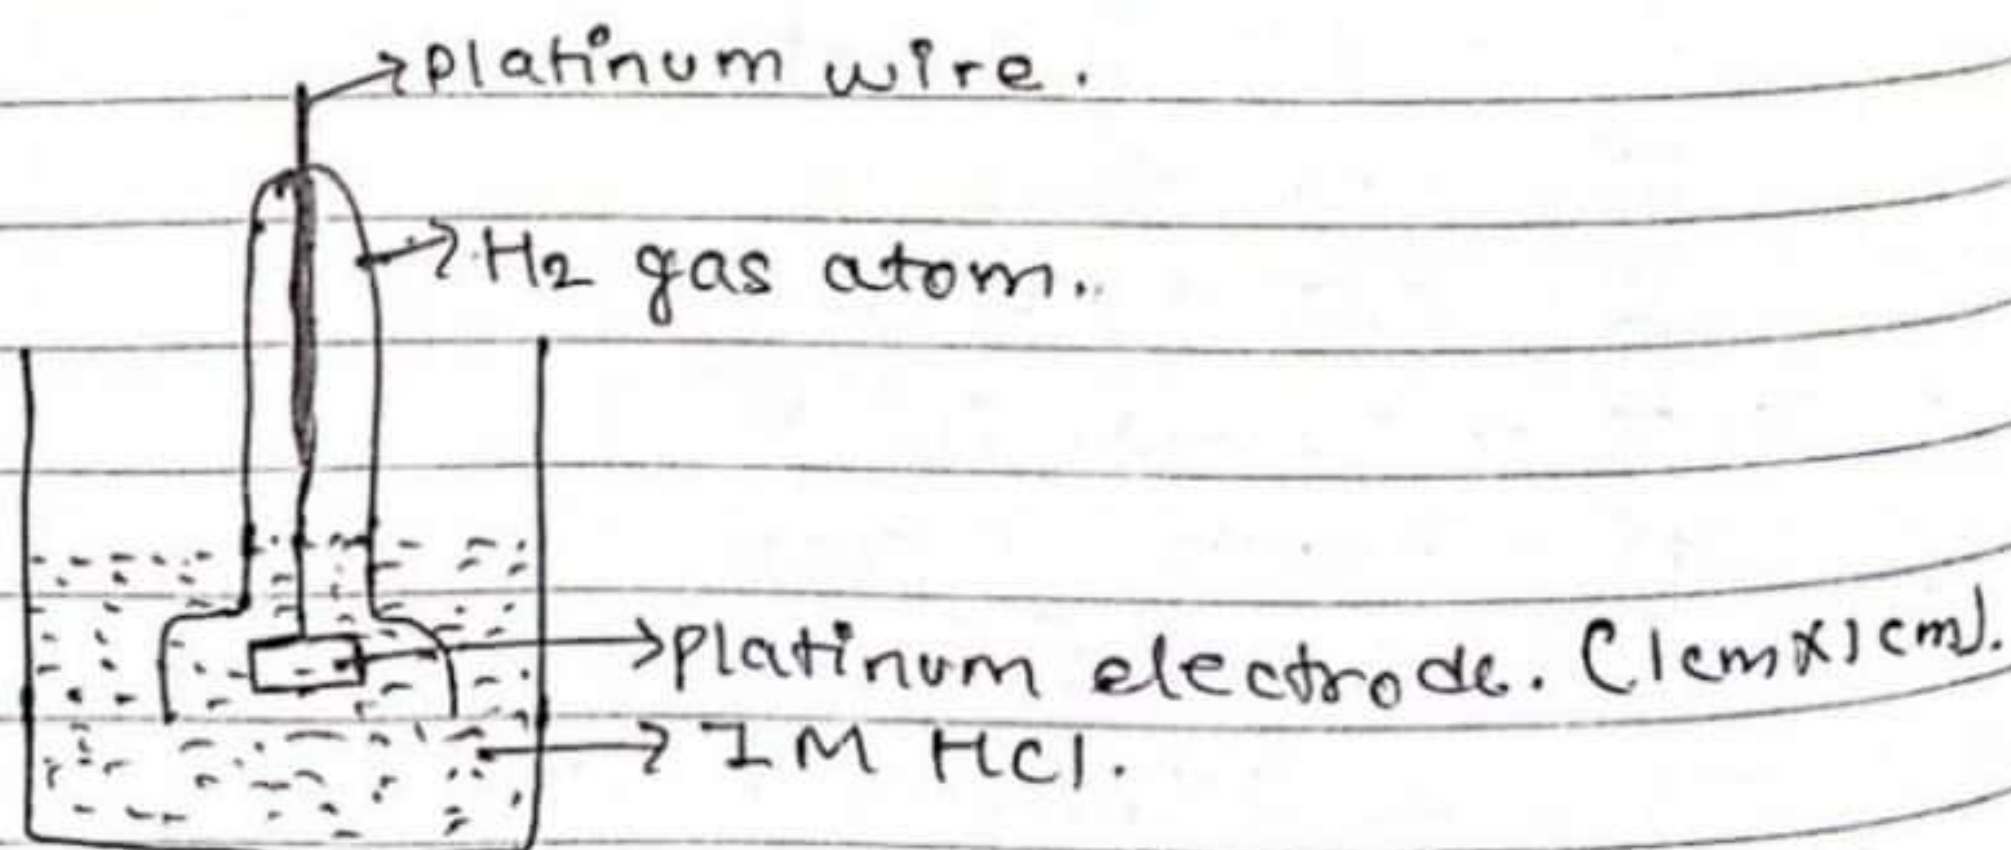 platinum wire.
H2 gas atom.
platinum electrode. (1cmx1cm).
1M HCl.